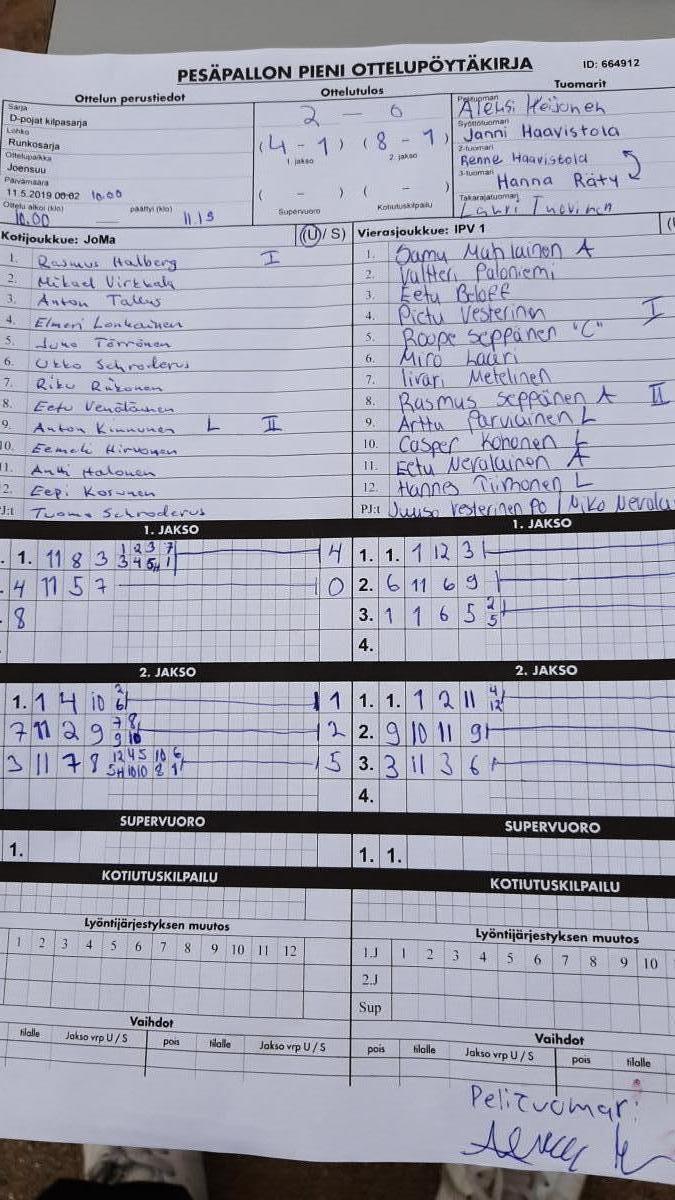 PESÄPALLON PIENI OTTELUPÖYTÄKIRJA ID: 664912
Ottelun perustiedot
Sarja
D-pojat kilpasarja
Lohko
Runkosarja
Ottelupaikka
Joensuu
Päivämäärä
11.5.2019 00:02 10.00
Ottelu alkoi (klo) päättyi (klo)
10.00 11.15
Ottelutulos
2 - 0
(4 - 1) (8 - 1)
1. jakso 2. jakso
( - ) ( - )
Supervuoro Kotiutuskilpailu
Tuomarit
Pelituomari
Aleksi Heijonen
Syöttötuomari
Janni Haavistola
2-tuomari
Renne Haavistola
3-tuomari
Hanna Räty
Takarajatuomari
Lauri Tuovinen
Kotijoukkue: JoMa (U / S)
1. Rasmus Halberg I
2. Mikael Virkkala
3. Anton Tallus
4. Elmeri Lonkainen
5. Juho Törrönen
6. Ukko Schroderus
7. Riku Riikonen
8. Eetu Venäläinen
9. Anton Kinnunen L II
10. Eemeli Hirvonen
11. Antti Halonen
2. Eepi Kosunen
PJ:t Tuomo Schroderus
Vierasjoukkue: IPV 1
1. Samu Mahlainen A
2. Valtteri Paloniemi
3. Eetu Beloff
4. Pietu Vesterinen I
5. Roope Seppänen "C"
6. Miro Lauri
7. Iivari Metelinen
8. Rasmus Seppänen A II
9. Arttu Parviainen L
10. Casper Kononen L
11. Eetu Nevalainen A
12. Hannes Tiimonen L
PJ:t Juuso Vesterinen PO / Niko Nevala
1. JAKSO
1. 11 8 3 1 2 3 7 4
3 4 5H 1
4 11 5 7 0
8
1. JAKSO
1. 1. 1 12 3
2. 6 11 6 9
3. 1 1 6 5 2
5
4.
2. JAKSO
1. 1 4 10 2 1
6
7 11 2 9 7 8 2
9 10
3 11 7 8 12 4 5 10 6 5
5H 10 10 8 1
2. JAKSO
1. 1. 1 2 11 4
12
2. 9 10 11 9
3. 3 11 3 6
4.
SUPERVUORO
1.
SUPERVUORO
1. 1.
KOTIUTUSKILPAILU
KOTIUTUSKILPAILU
Lyöntijärjestyksen muutos
1 2 3 4 5 6 7 8 9 10 11 12
Lyöntijärjestyksen muutos
1.J 1 2 3 4 5 6 7 8 9 10
2.J
Sup
Vaihdot
tilalle Jakso vrp U / S pois tilalle Jakso vrp U / S
Vaihdot
pois tilalle Jakso vrp U / S pois tilalle
Pelituomari: